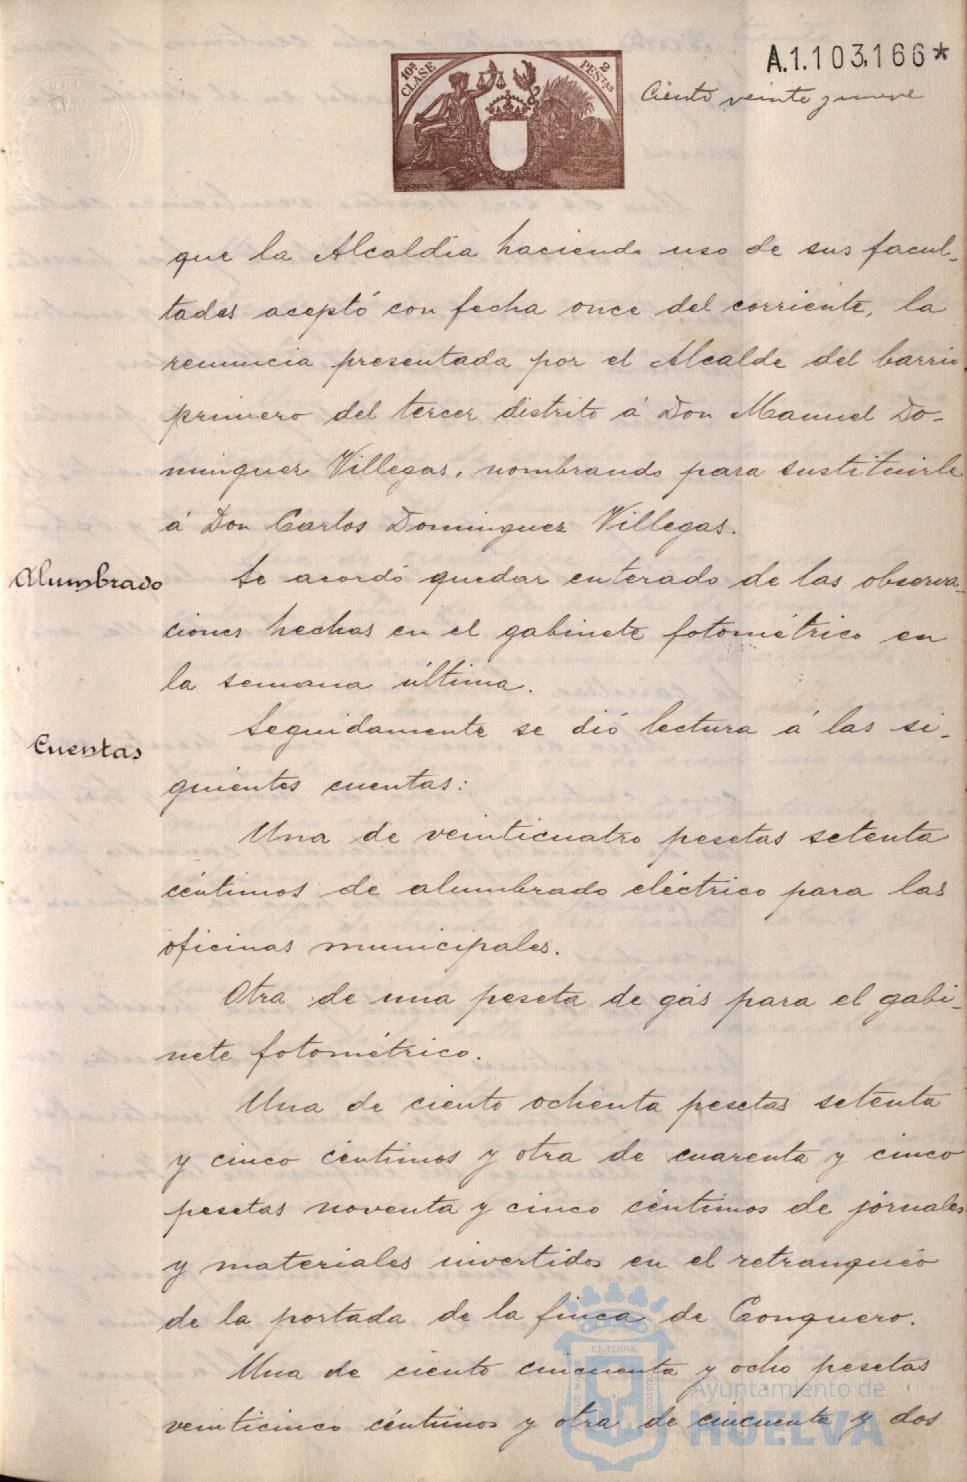 A.1.103.166*
10ª CLASE
2 PESTAS
Ciento veinte y nueve
que la Alcaldia haciendo uso de sus facul-
tades aceptó con fecha once del corriente, la
renuncia presentada por el Alcalde del barrio
primero del tercer distrito á Don Manuel Do-
minguez Villegas, nombrando para sustituirle
á Don Carlos Dominguez Villegas.
Alumbrado
Se acordó quedar enterado de las observa-
ciones hechas en el gabinete fotométrico en
la semana última.
Cuentas
Seguidamente se dió lectura á las si-
guientes cuentas:
Una de veinticuatro pesetas setenta
céntimos de alumbrado eléctrico para las
oficinas municipales.
Otra de una peseta de gás para el gabi-
nete fotométrico.
Una de ciento ochenta pesetas setenta
y cinco céntimos y otra de cuarenta y cinco
pesetas noventa y cinco céntimos de jornales
y materiales invertidos en el retranqueo
de la portada de la finca de Conquero.
Una de ciento cincuenta y ocho pesetas
veinticinco céntimos y otra de cincuenta y dos
ET TERRA
Ayuntamiento de
HUELVA